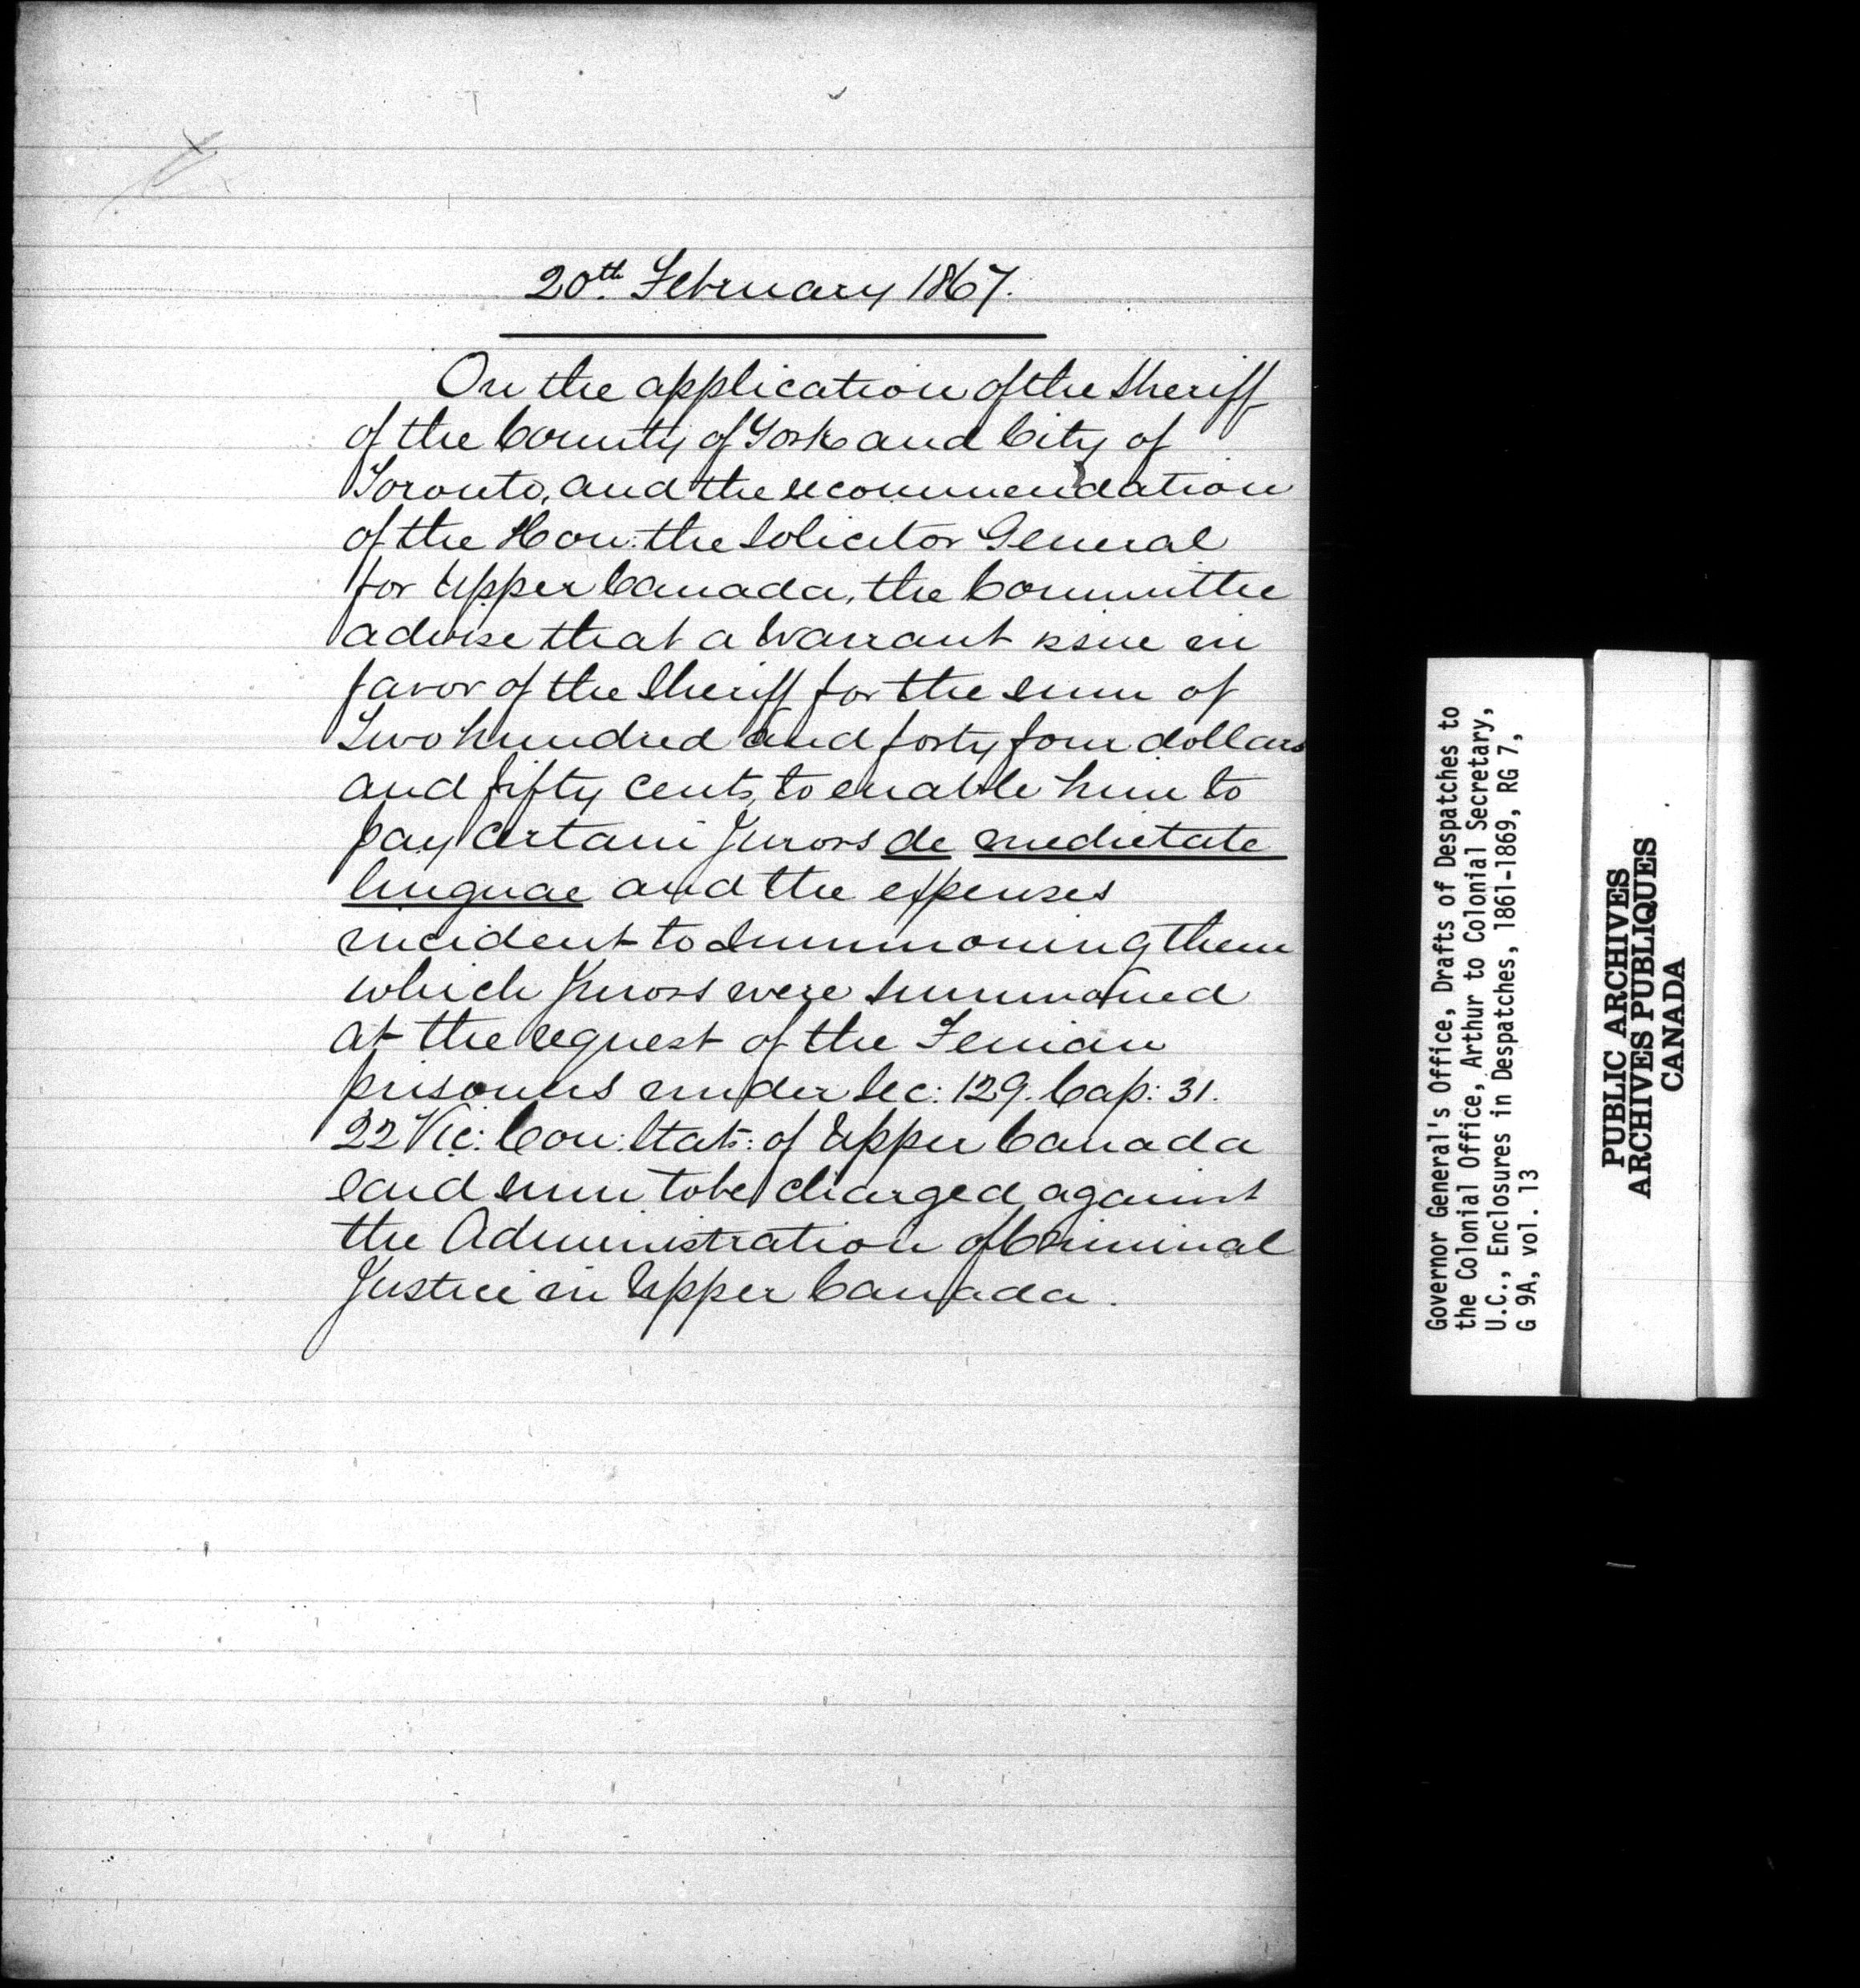 20th. February 1867.
On the application of the Sheriff
of the County of York and City of
Toronto, and the recommendation
of the Hon: the Solicitor General
for Upper Canada, the Committee
advise that a Warrant issue in
favor of the Sheriff for the sum of
Two hundred and forty four dollars
and fifty cents, to enable him to
pay certain Jurors de medietate
linguae and the expenses
incident to Summoning them
which Jurors were summoned
at the request of the Fenian
prisoners under Sec: 129. Cap: 31.
22 Vic: Con: Stat: of Upper Canada
said sum to be charged against
the Administration of Criminal
Justice in Upper Canada.
Governor General's Office, Drafts of Despatches to
the Colonial Office, Arthur to Colonial Secretary,
U.C., Enclosures in Despatches, 1861-1869, RG 7,
G 9A, vol. 13
PUBLIC ARCHIVES
ARCHIVES PUBLIQUES
CANADA